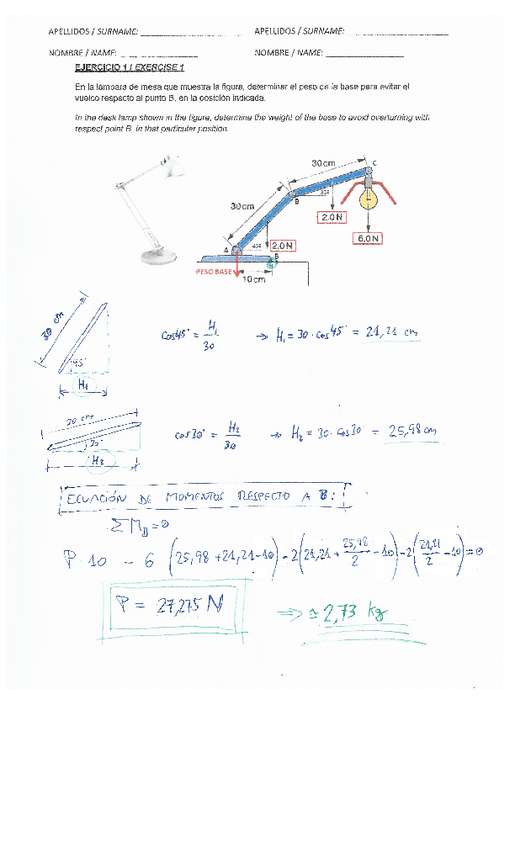 APELLIDOS / SURNAME: ____________________ APELLIDOS / SURNAME: ____________________
NOMBRE / NAME: ____________________ NOMBRE / NAME: ____________________
EJERCICIO 1 / EXERCISE 1
En la lámpara de mesa que muestra la figura, determinar el peso de la base para evitar el
vuelco respecto al punto B, en la posición indicada.
In the desk lamp shown in the figure, determine the weight of the base to avoid overturning with
respect point B, in that particular position.
30 cm
C
30 cm
B
2.0 N
A
45º
2.0 N
6.0 N
B
PESO BASE
10 cm
30 cm
45°
H₁
cos 45° = H₁/30 → H₁ = 30 · cos 45° = 21,21 cm
30 cm
30°
H₂
cos 30° = H₂/30 → H₂ = 30 · cos 30 = 25,98 cm
ECUACIÓN DE MOMENTOS RESPECTO A B:
∑ M_B = 0
P 10 - 6 (25,98 + 21,21 - 10) - 2 (21,21 + 25,98/2 - 10) - 2 (21,21/2 - 10) = 0
P = 27,275 N ⇒ ≃ 2,73 kg